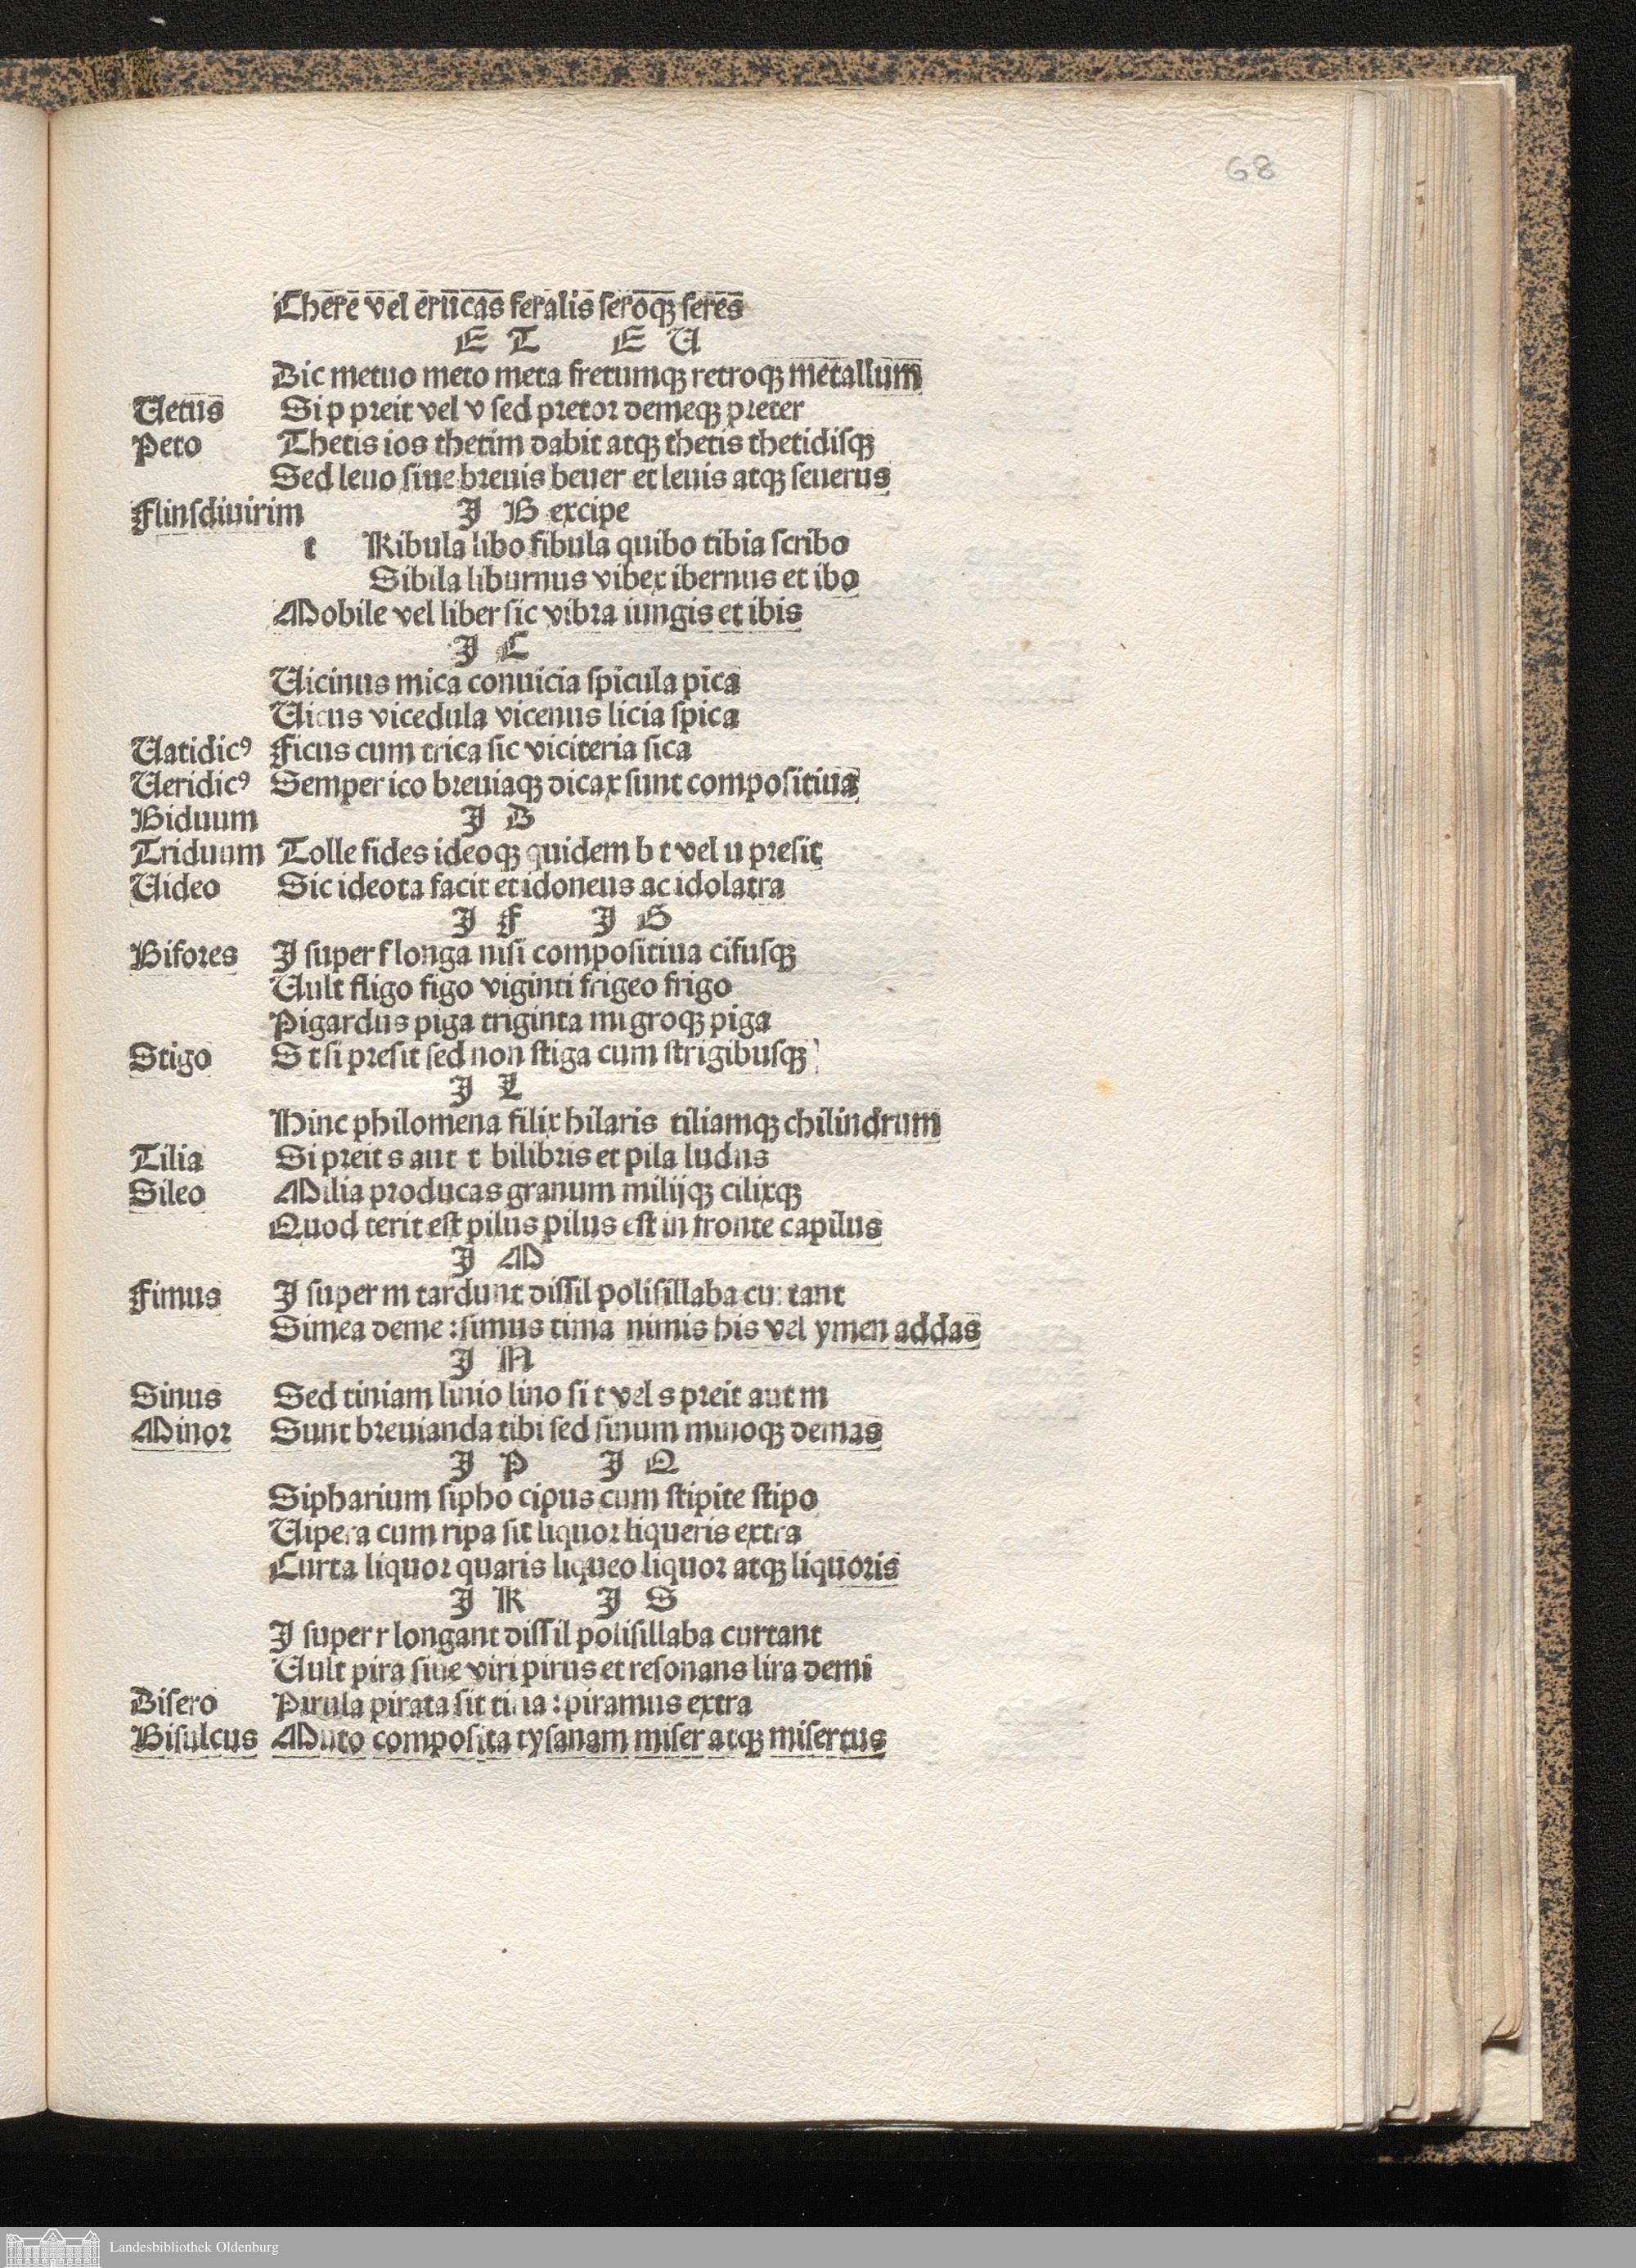 68
Chere vel erucas feralis ſeroqꝫ ſeres
E T E U
Dic metuo meto meta fretumqꝫ retroqꝫ metallum
Uetus Si p preit vel v ſed pretor demeqꝫ preter
Peto Thetis ios thetim dabit atqꝫ thetis thetidiſqꝫ
Sed leuo ſiue breuis beuer et leuis atqꝫ ſeuerus
Flinſdiuirim J B excipe
t Ribula libo fibula quibo tibia ſcribo
Sibila liburnus vibex ibernus et ibo
Mobile vel liber ſic vibra iungis et ibis
J C
Uicinus mica conuicia ſpicula pica
Uicus vicedula vicenus licia ſpica
Uatidicꝰ Ficus cum trica ſic viciteria ſica
Ueridicꝰ Semper ico breuiaqꝫ dicax ſunt compoſitiua
Biduum J D
Triduum Tolle fides ideoqꝫ quidem b t vel u preſit
Uideo Sic ideota facit et idoneus ac idolatra
J F J G
Bifores J ſuper f longa niſi compoſitiua cifuſqꝫ
Uult fligo figo viginti frigeo frigo
Pigardus piga triginta migroqꝫ piga
Stigo S t ſi preſit ſed non ſtiga cum ſtrigibuſqꝫ
J L
Hinc philomena filix hilaris tiliamqꝫ chilindrum
Tilia Si preit s aut t bilibris et pila ludus
Sileo Milia producas granum milijqꝫ cilixqꝫ
Quod terit eſt pilus pilus eſt in fronte capilus
J M
Fimus J ſuper m tardunt diſſil poliſillaba curtant
Simea deme : ſimus tima nimis his vel ymen addas
J N
Sinus Sed tiniam linio lino ſi t vel s preit aut m
Minor Sunt breuianda tibi ſed ſinum minoqꝫ demas
J P J Q
Sipharium ſipho cipus cum ſtipite ſtipo
Uipera cum ripa ſit liquor liqueris extra
Curta liquor quaris liqueo liquor atqꝫ liquoris
J R J S
J ſuper r longant diſſil poliſillaba curtant
Uult pira ſiue viri pirus et reſonans lira demi
Diſero Pirula pirata ſit : piramus extra
Biſulcus Muto compoſita tyſanam miſer atqꝫ miſertus
Landesbibliothek Oldenburg